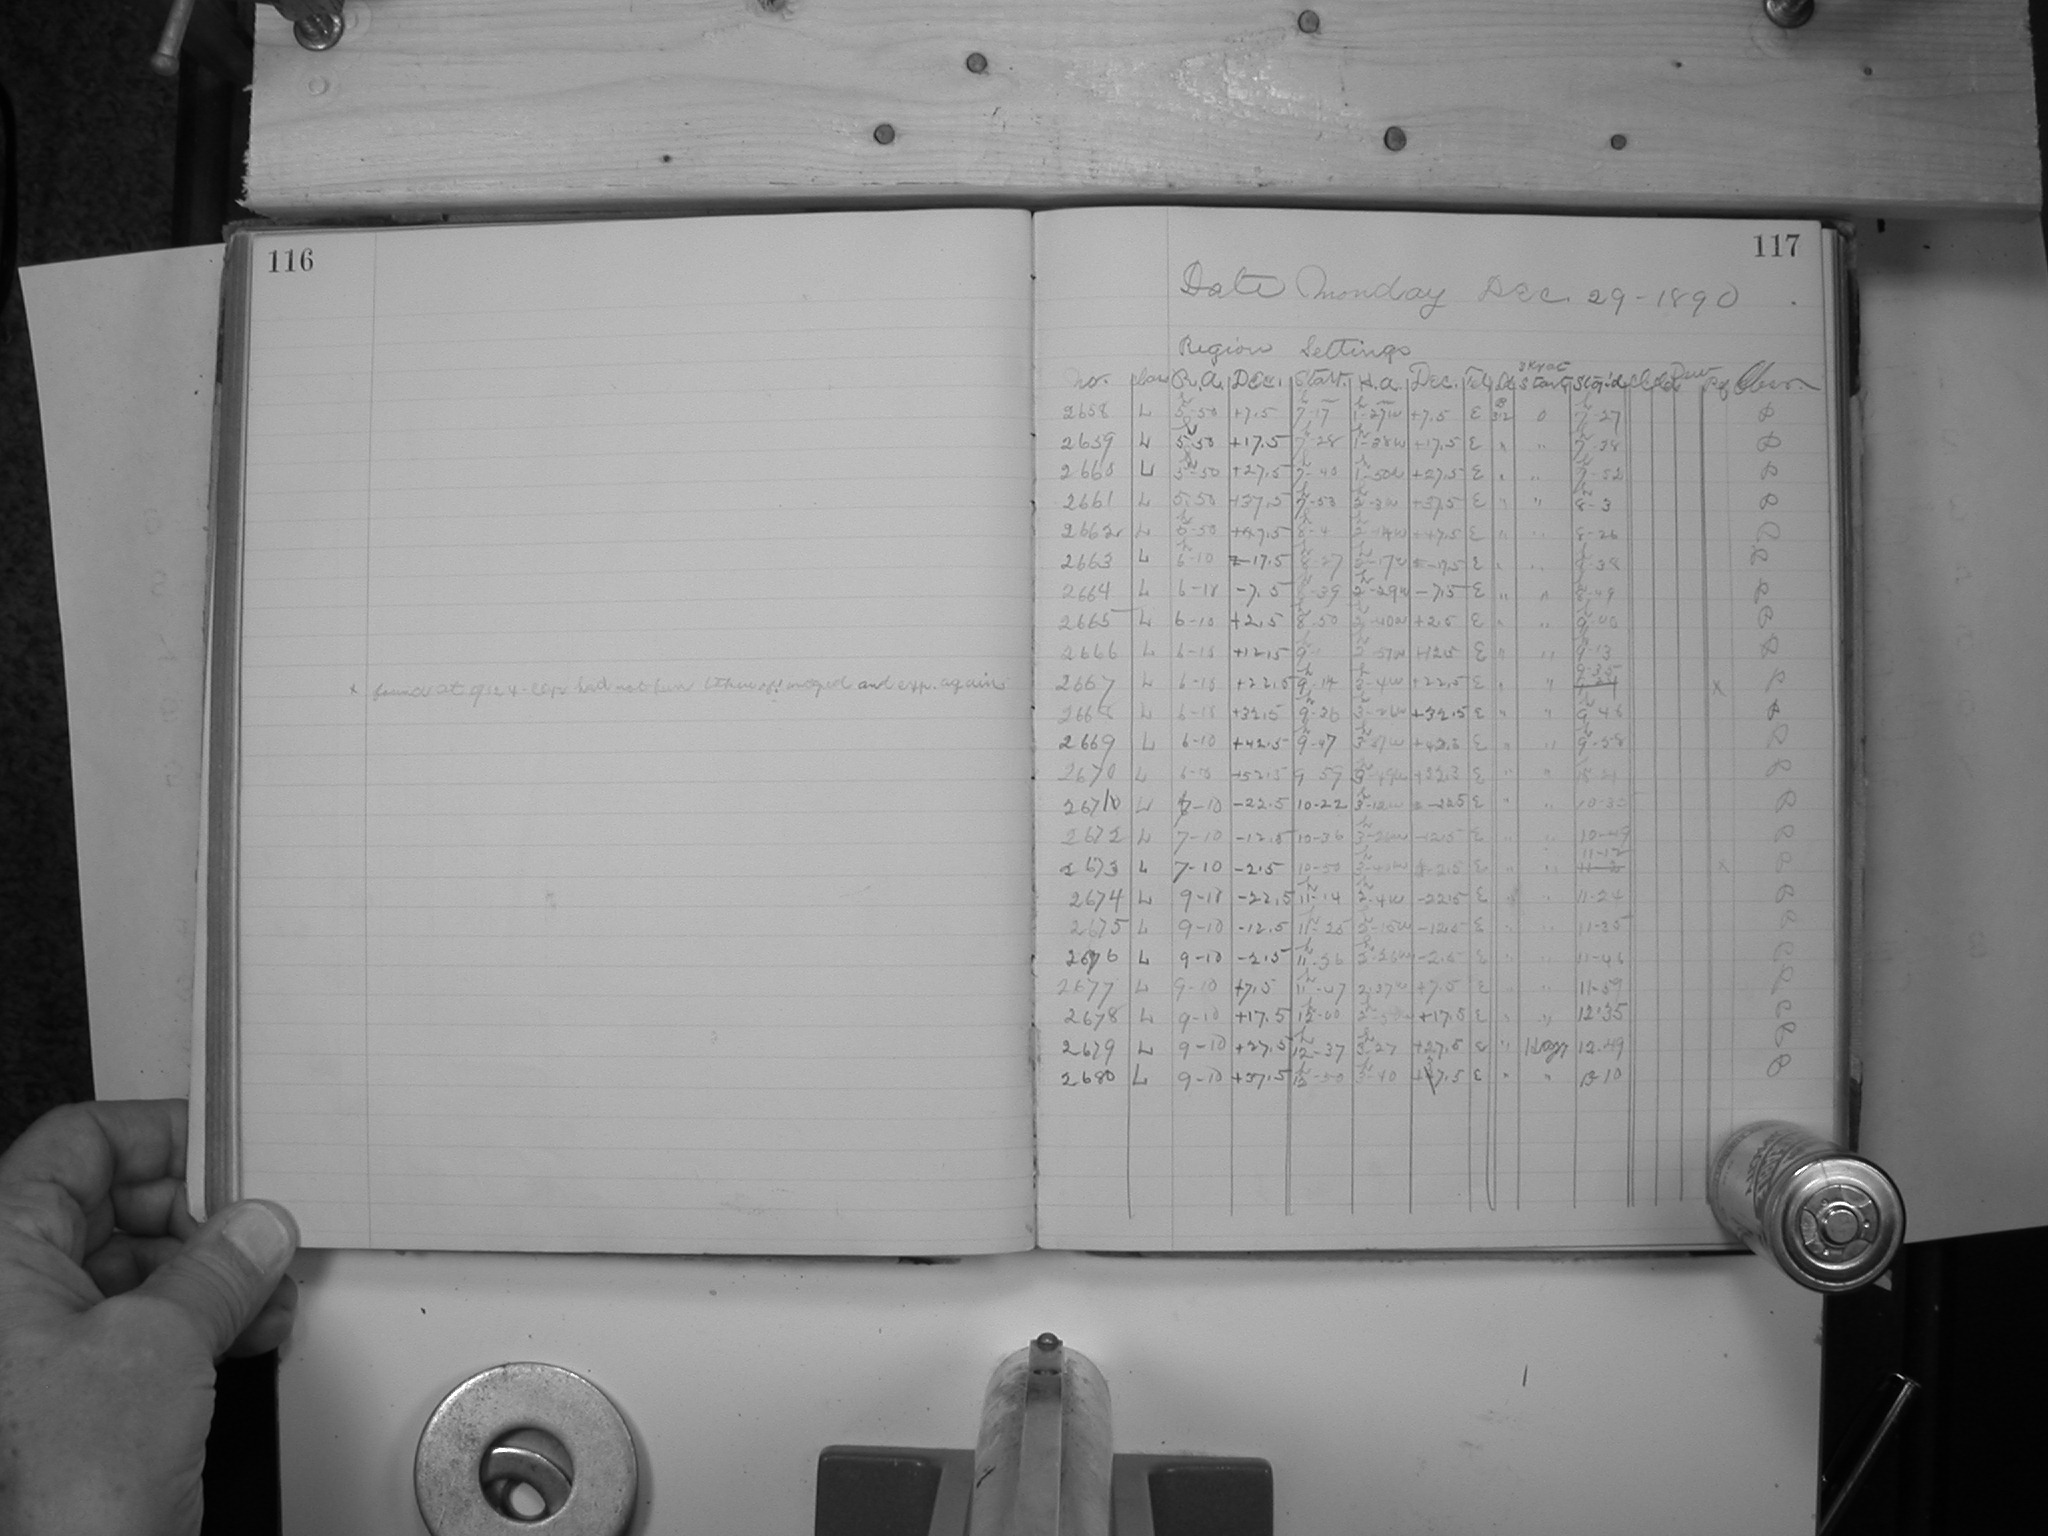 116
x found at 9:24 - had not been moved and exp. again
117
Date Monday Dec. 29-1890
Region Settings
No. Class R.A. Dec. Start. H.A. Dec. Tel Start Stop'd Obsr.
2658 L 5-50 +7.5 7-17 1-27w +7.5 E 0 7-27
2659 L 5-50 +17.5 7-28 1-38w +17.5 E " " 7-38
2660 L 5-50 +27.5 7-40 1-50w +27.5 E " " 7-52
2661 L 5-50 +37.5 7-53 2-3w +37.5 E " " 8-3
2662 L 5-50 +47.5 8-4 2-14w +47.5 E " " 8-26
2663 L 6-10 -17.5 8-27 2-17w -17.5 E " " 8-38
2664 L 6-10 -7.5 8-39 2-29w -7.5 E " " 8-49
2665 L 6-10 +2.5 8-50 2-40w +2.5 E " " 9-00
2666 L 6-10 +12.5 9-1 2-51w +12.5 E " " 9-13
2667 L 6-10 +22.5 9-14 3-4w +22.5 E " " 9-35 x
2668 L 6-10 +32.5 9-36 3-26w +32.5 E " " 9-46
2669 L 6-10 +42.5 9-47 3-37w +42.5 E " " 9-58
2670 L 6-10 +52.5 9-59 3-49w +52.5 E " " 10-21
2671 L 7-10 -22.5 10-22 3-12w -22.5 E " " 10-35
2672 L 7-10 -12.5 10-36 3-26w -12.5 E " " 10-49
2673 L 7-10 -2.5 10-50 3-40w -2.5 E " " 11-12 x
2674 L 9-10 -22.5 11-14 2-4w -22.5 E " " 11-24
2675 L 9-10 -12.5 11-25 2-15w -12.5 E " " 11-35
2676 L 9-10 -2.5 11-36 2-26w -2.5 E " " 11-46
2677 L 9-10 +7.5 11-47 2-37w +7.5 E " " 11-59
2678 L 9-10 +17.5 12-00 2-50w +17.5 E " " 12-35
2679 L 9-10 +27.5 12-37 3-27 +27.5 E " Hazy 12-49
2680 L 9-10 +37.5 12-50 3-40 +37.5 E " " 13-10